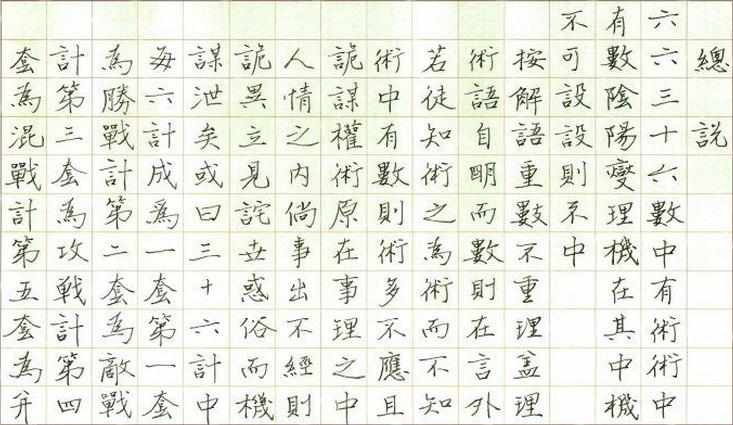 總說
六六三十六數中有術術中
有數陰陽燮理機在其中機
不可設設則不中
按解語重數不重理盖理
術語自明而數則在言外
若徒知術之為術而不知
術中有數則術多不應且
詭謀權術原在事理之中
人情之內倘事出不經則
詭異立見詫世惑俗而機
謀泄矣或曰三十六計中
每六計成爲一套第一套
為勝戰計第二套為敵戰
計第三套為攻戰計第四
套為混戰計第五套為并